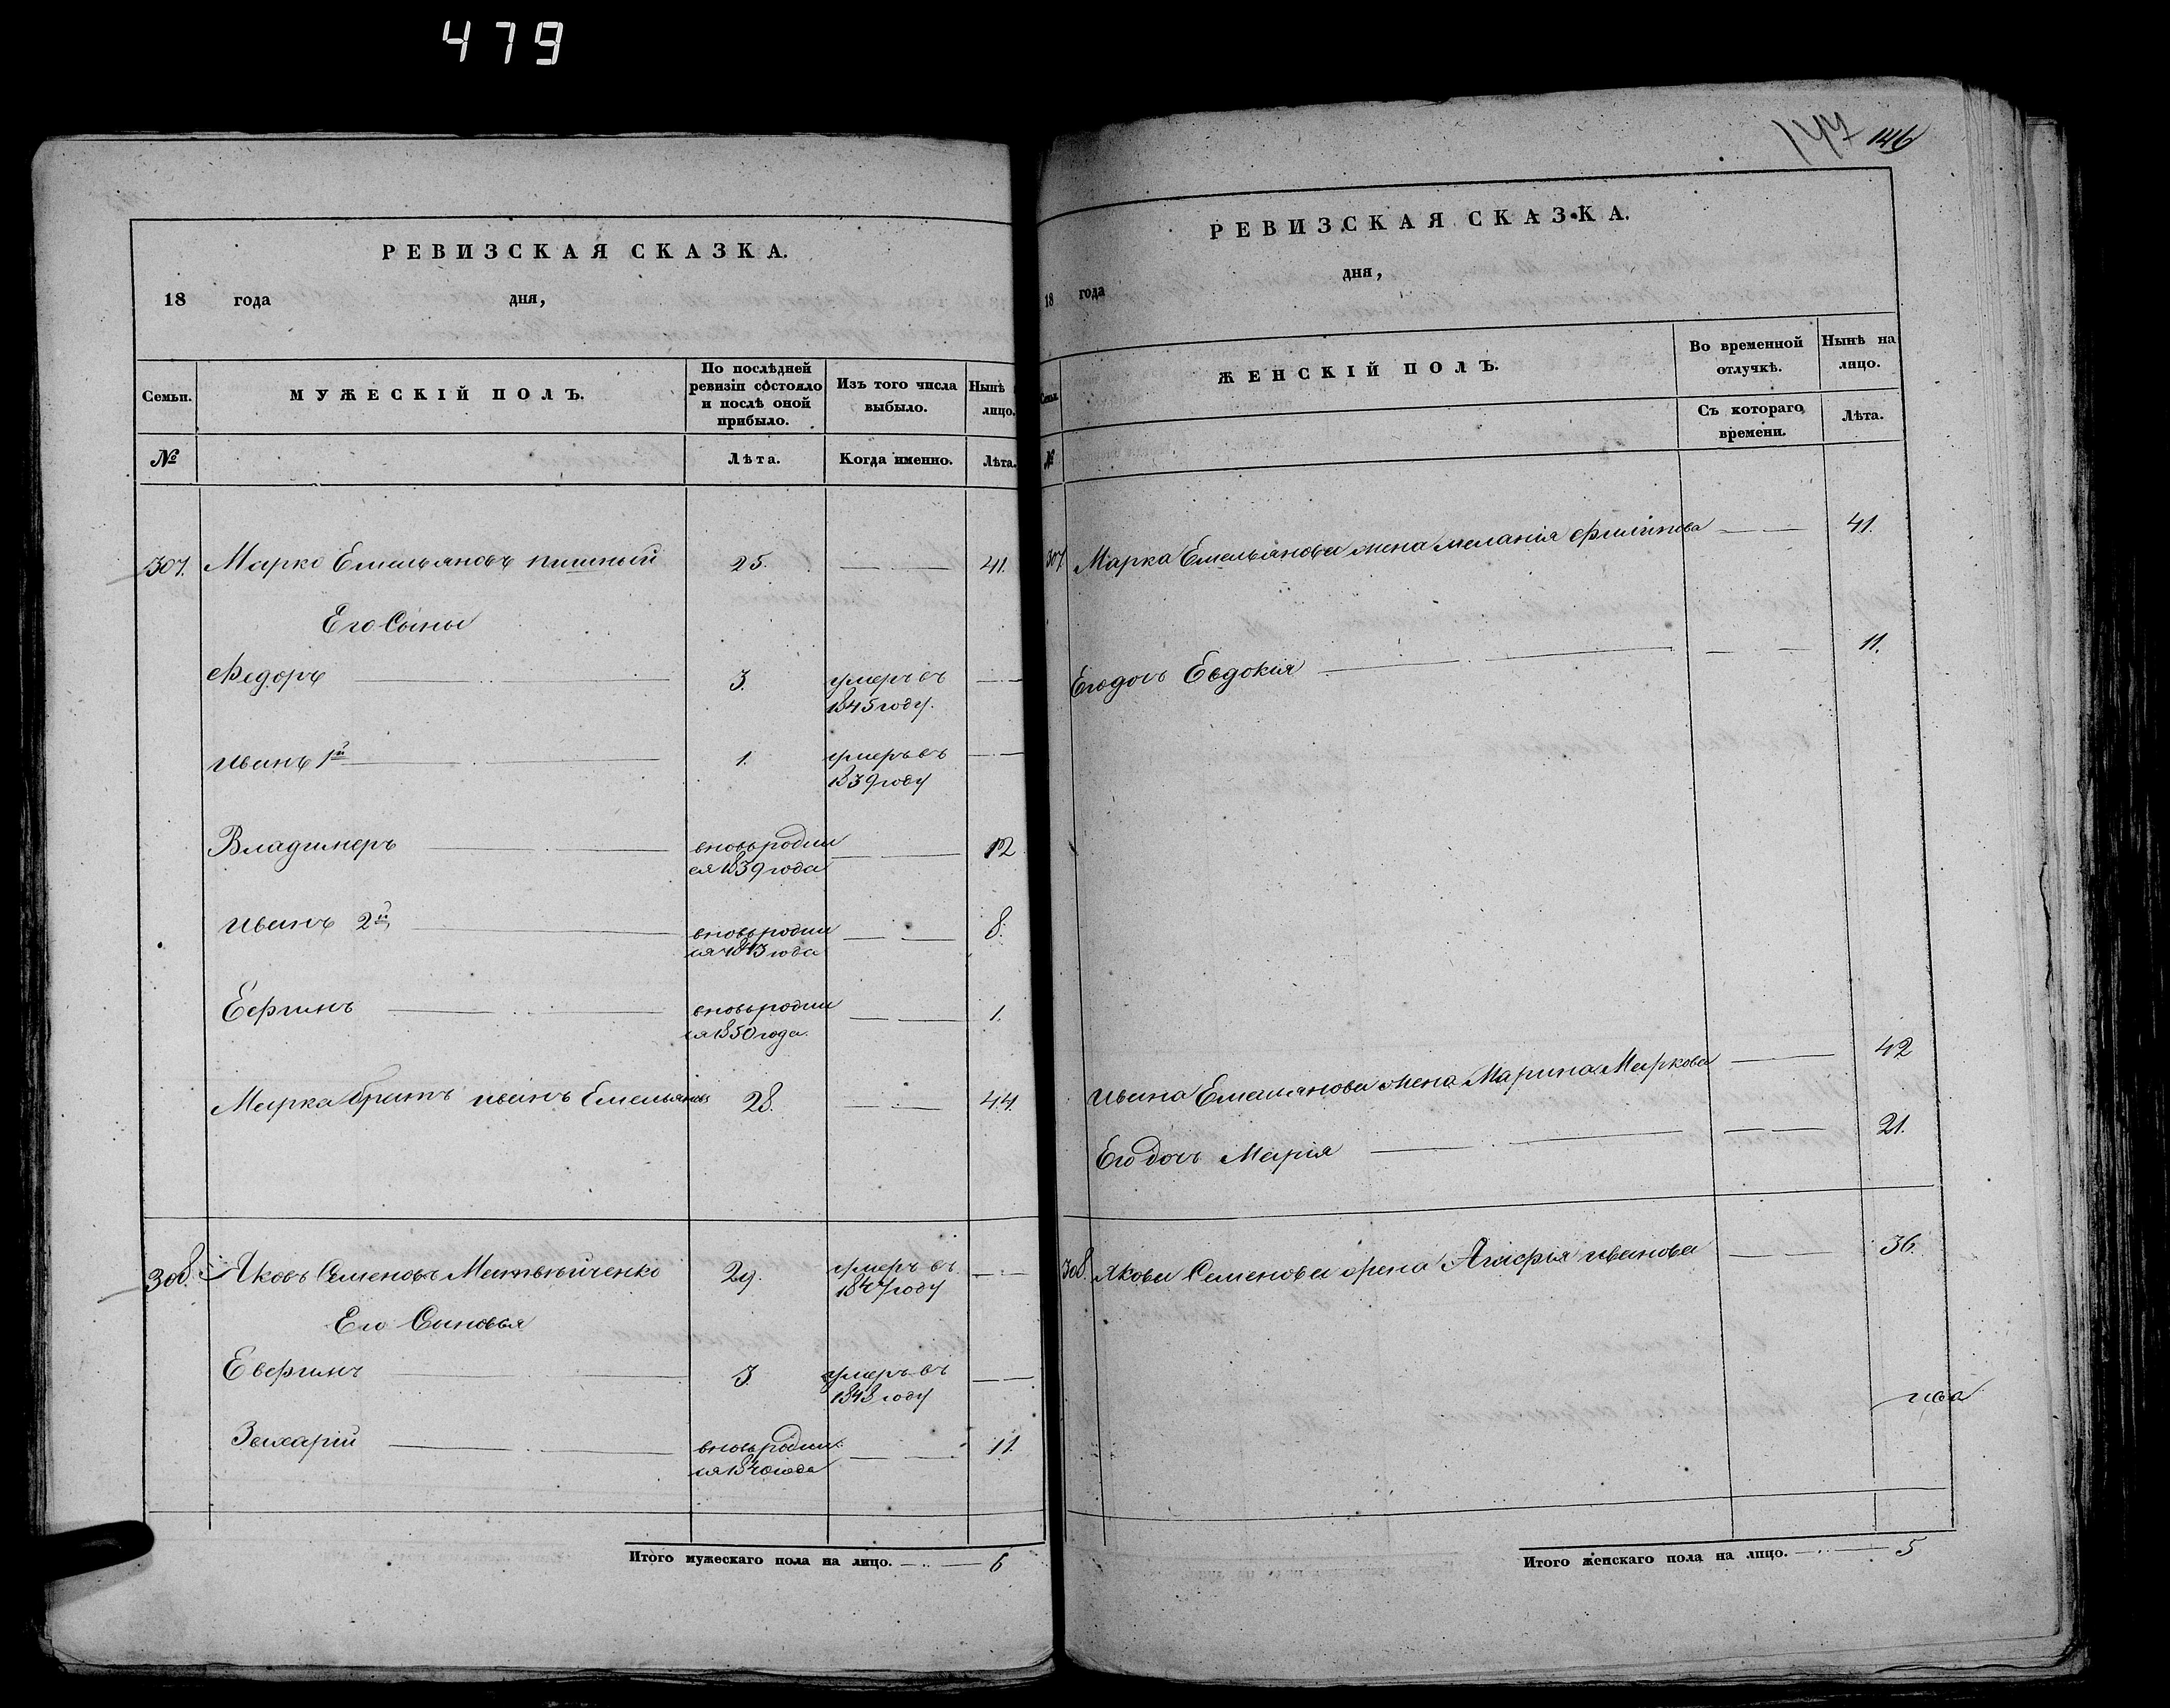 479
РЕВИЗСКАЯ СКАЗКА.
18 года дня,
Семьи. МУЖЕСКІЙ ПОЛЪ. По послѣдней ревизіи состояло и послѣ оной прибыло. Изъ того числа выбыло. Нынѣ лицо.
№ Лѣта. Когда именно. Лѣта.
307. Марко Емельяновъ 25. 41.
Его Сыны
Федоръ 3. умеръ въ
1845 году.
Иванъ 1й 1. умеръ въ
1839 году
Владимеръ вновь родил
ся 1839 года 12
Иванъ 2й вновь родил
ся 1843 года 8.
Ефимъ вновь родил
ся 1850 года. 1.
Марка братъ Иванъ Емельяновъ 28. 44.
308. Яковъ Семеновъ Матвѣйченко 29. умеръ въ
1847 году
Его Сыновья
Евфимъ 3. умеръ въ
1848 году
Захарій вновь родил
ся 1840 года 11.
Итого мужескаго пола на лицо. 6
147 146
РЕВИЗСКАЯ СКАЗКА.
18 года дня,
Семьи. ЖЕНСКІЙ ПОЛЪ. Во временной отлучкѣ. Нынѣ на лицо.
№ Съ котораго времени. Лѣта.
307 Марка Емельянова жена Меланія Филипова 41.
Его дочь Евдокія 11.
Ивана Емельянова жена Марина Маркова 42
Его дочь Марія 21.
308. Якова Семенова жена Агафія Иванова 36.
Итого женскаго пола на лицо. 5